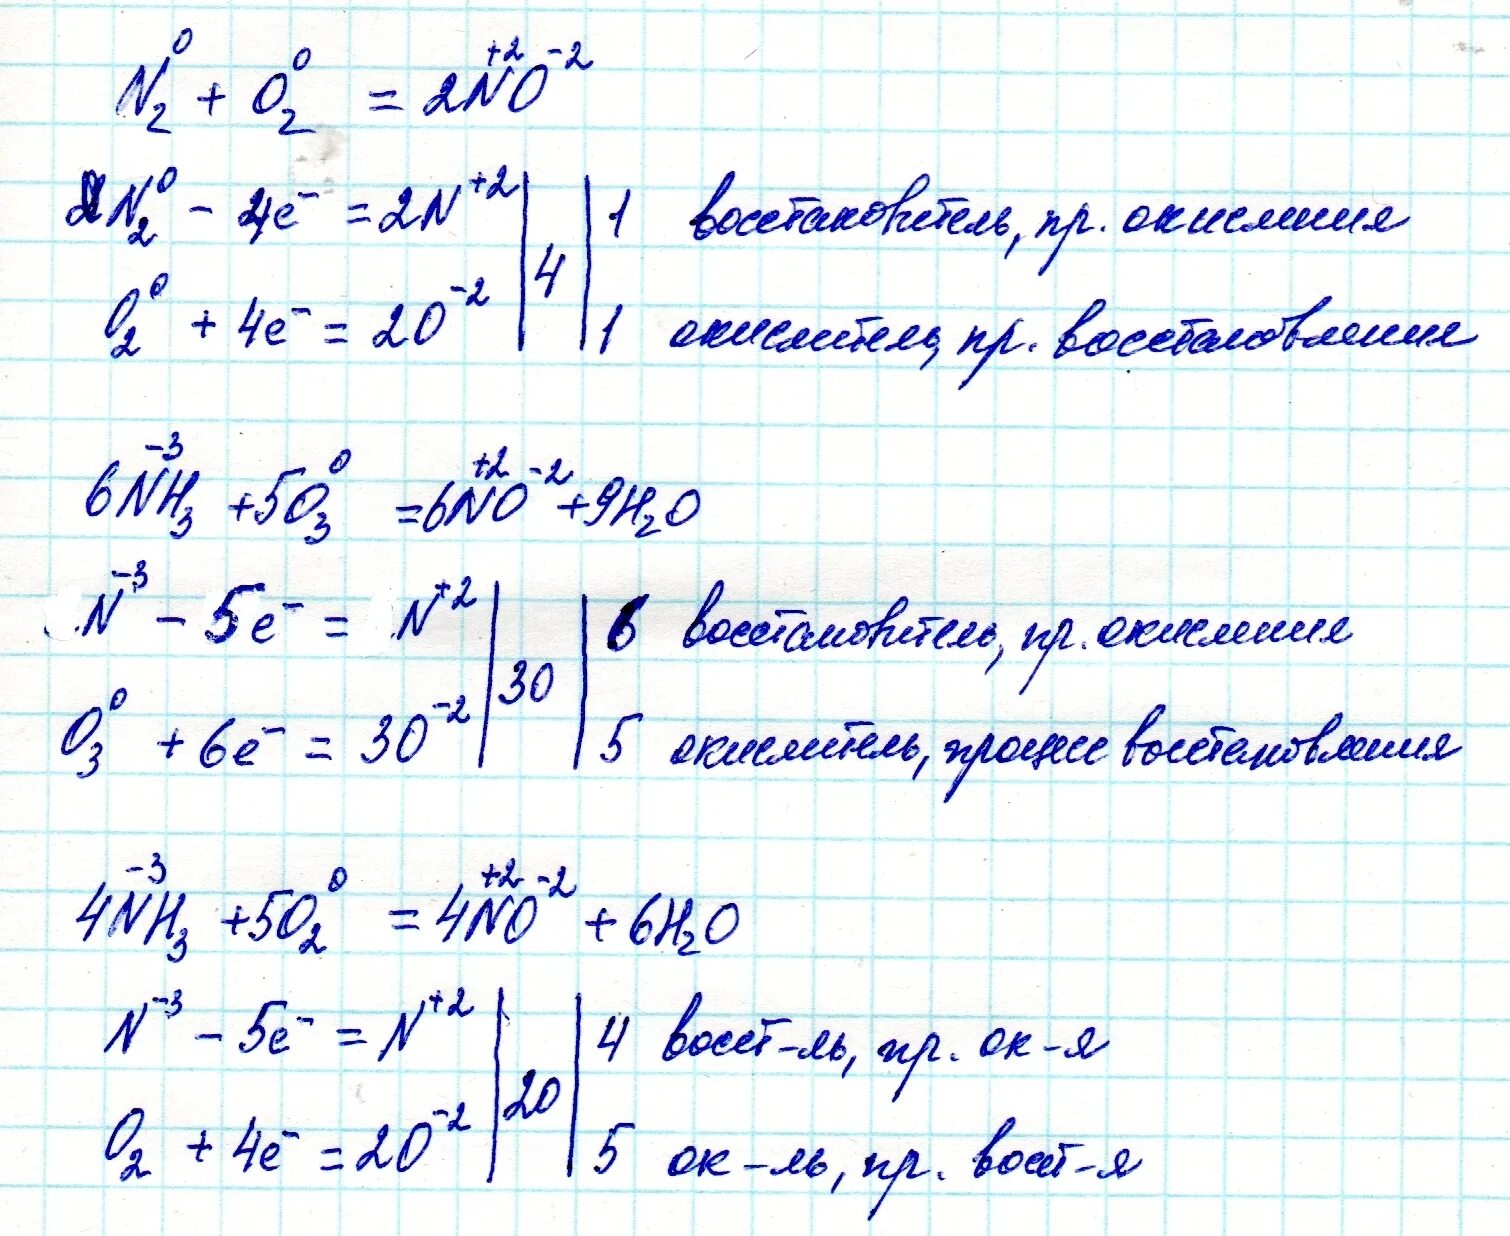 N₂⁰ + O₂⁰ = 2N⁺²O⁻²
N₂⁰ - 4e⁻ = 2N⁺² | 4 | 1 восстановитель, пр. окисления
O₂⁰ + 4e⁻ = 2O⁻² | 1 окислитель, пр. восстановления
6N⁻³H₃ + 5O₃⁰ = 6N⁺²O⁻² + 9H₂O
N⁻³ - 5e⁻ = N⁺² | 30 | 6 восстановитель, пр. окисления
O₃⁰ + 6e⁻ = 3O⁻² | 5 окислитель, процесс восстановления
4N⁻³H₃ + 5O₂⁰ = 4N⁺²O⁻² + 6H₂O
N⁻³ - 5e⁻ = N⁺² | 20 | 4 восст-ль, пр. ок-я
O₂ + 4e⁻ = 2O⁻² | 5 ок-ль, пр. восст-я